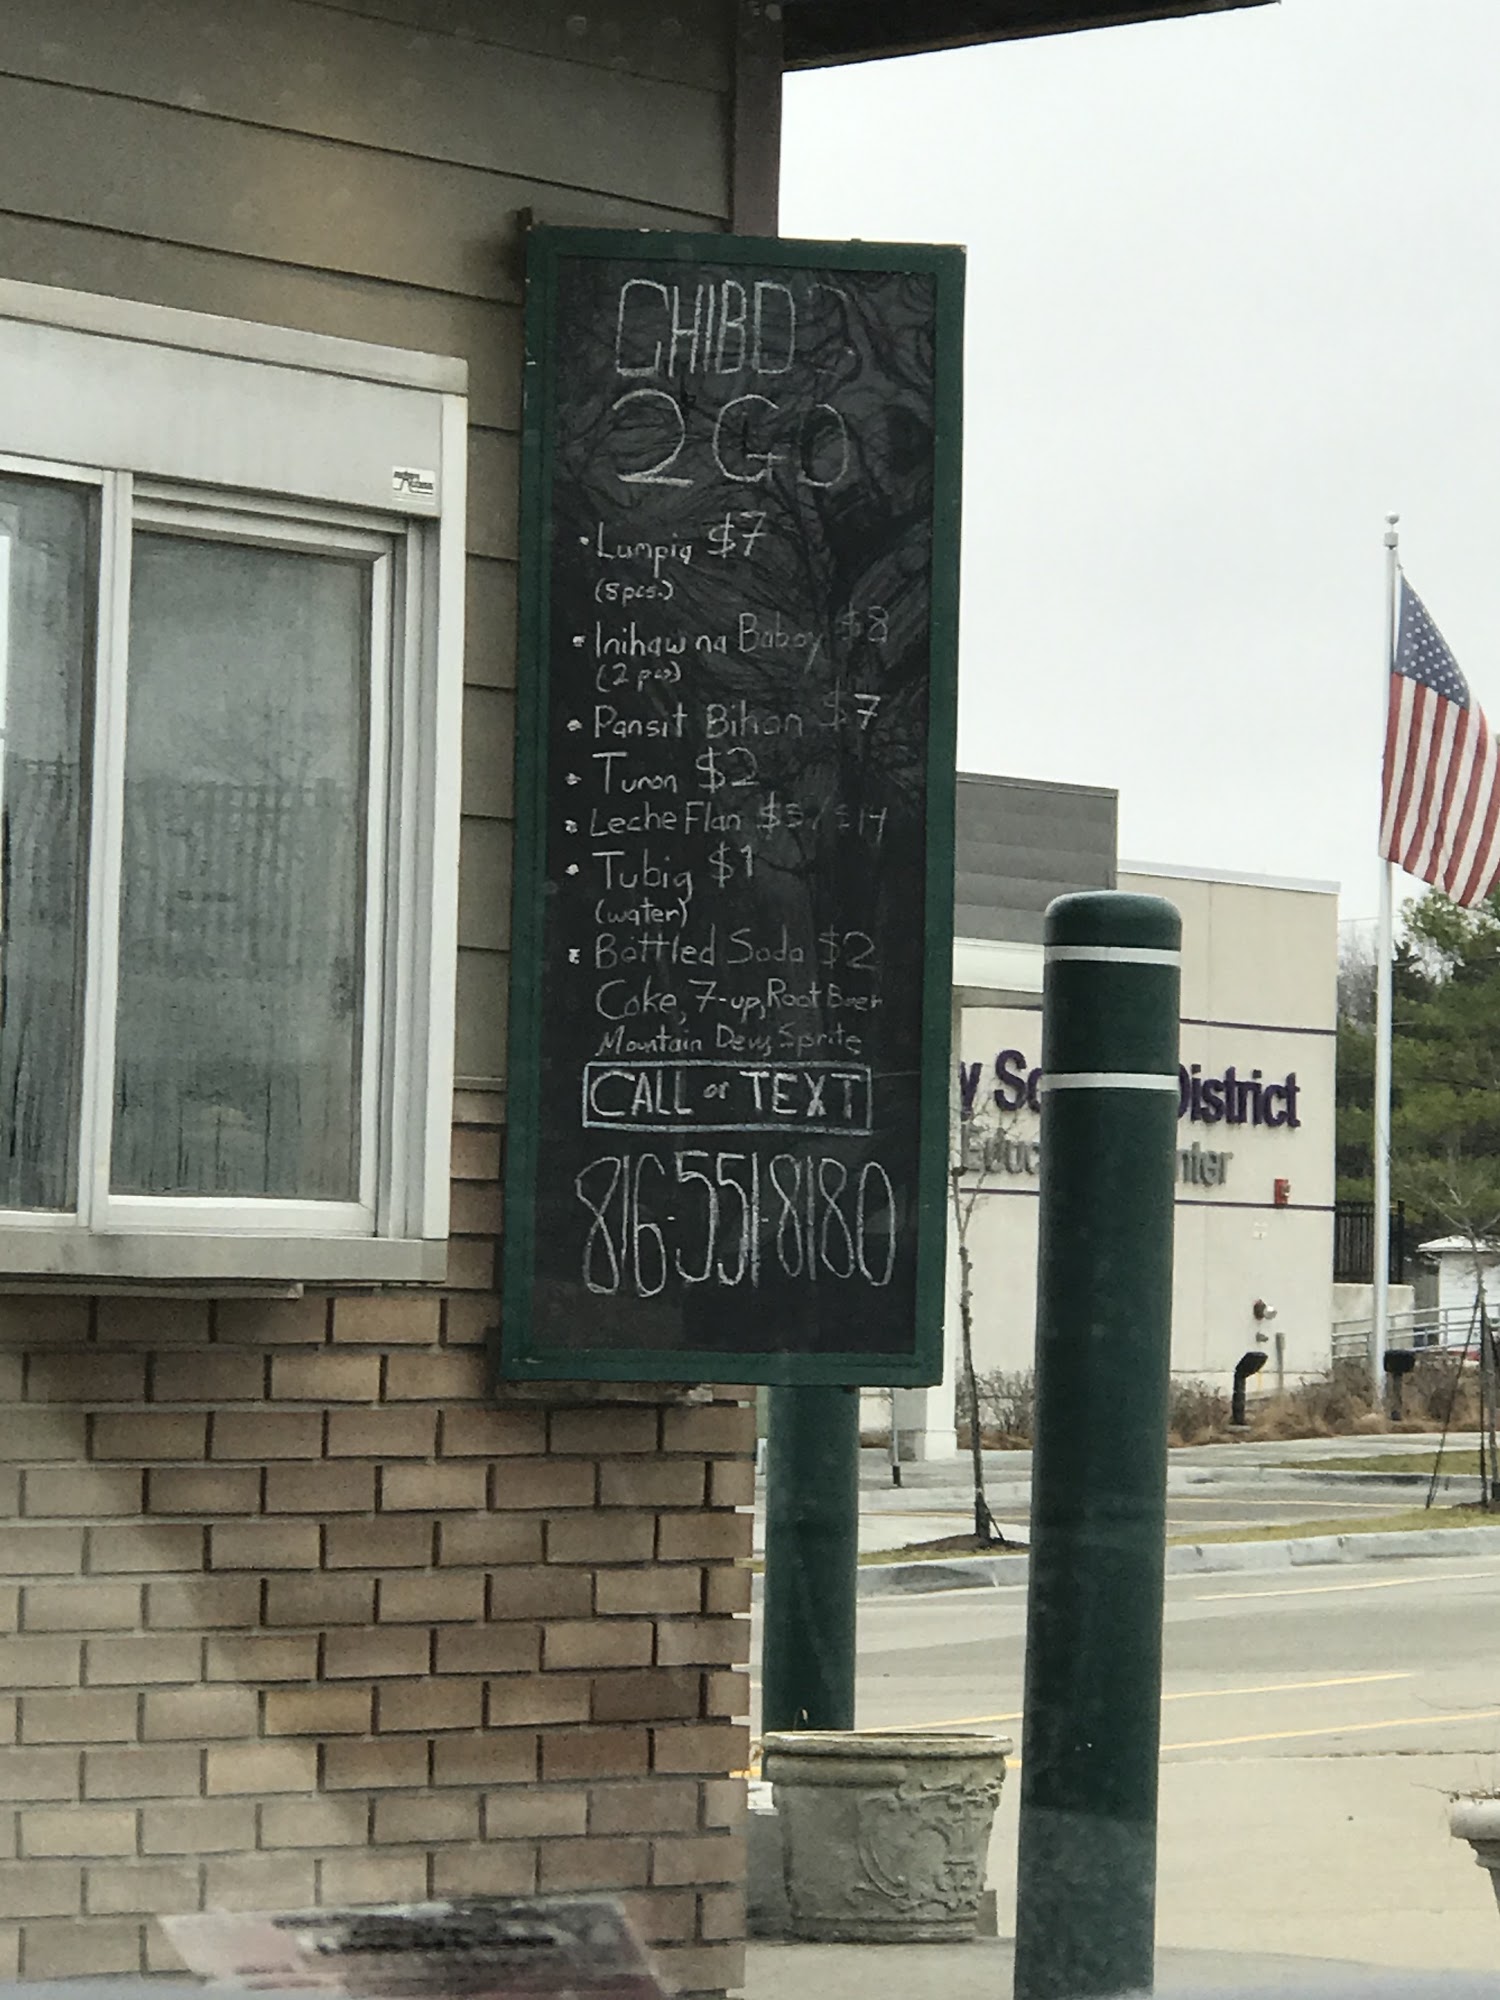 CHIBO
2GO
• Lumpia $7
(8pcs.)
• Inihaw na Baboy $8
(2 pcs)
• Pansit Bihon $7
• Turon $2
• Leche Flan $5/$14
• Tubig $1
(water)
• Bottled Soda $2
Coke, 7-up, Root Beer
Mountain Dew, Sprite
CALL or TEXT
816-551-8180
District